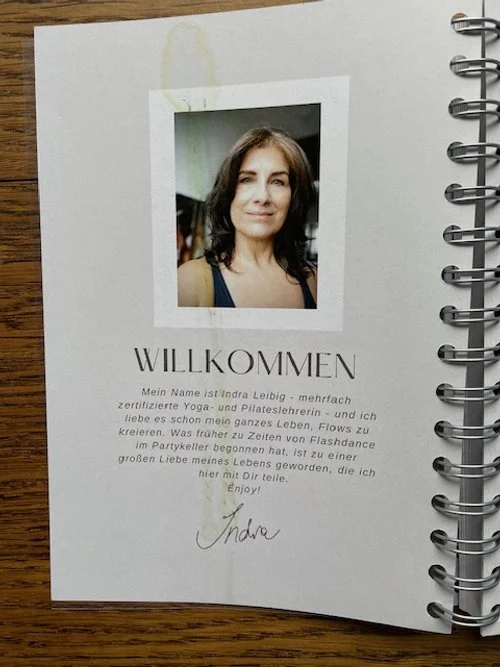 WILLKOMMEN
Mein Name ist Indra Leibig - mehrfach
zertifizierte Yoga- und Pilateslehrerin - und ich
liebe es schon mein ganzes Leben, Flows zu
kreieren. Was früher zu Zeiten von Flashdance
im Partykeller begonnen hat, ist zu einer
großen Liebe meines Lebens geworden, die ich
hier mit Dir teile.
Enjoy!
Indra